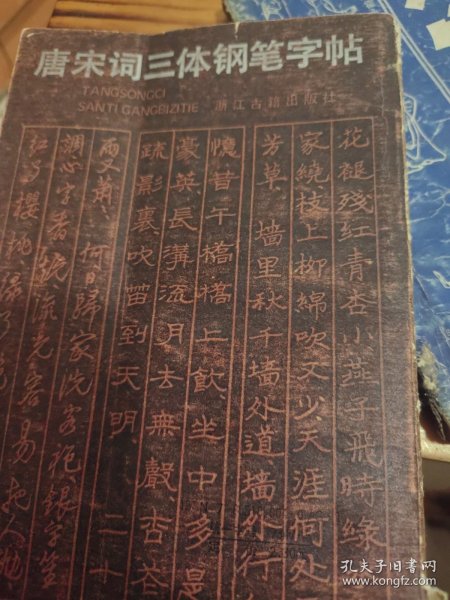 唐宋词三体钢笔字帖
TANGSONGCI
SANTI GANGBIZITIE 浙江古籍出版社
花褪残红青杏小燕子飛時綠
家繞枝上柳綿吹又少天涯何处
芳草 墙里秋千墙外道墙外行
憶昔午橋橋上飲坐中多是
豪英長溝流月去無聲杏花
疏影裏吹笛到天明 二十
雨又蕭蕭 何日歸家洗客袍銀字笙
調心字香燒流光容易把人抛
紅了櫻桃綠了芭
孔夫子旧书网